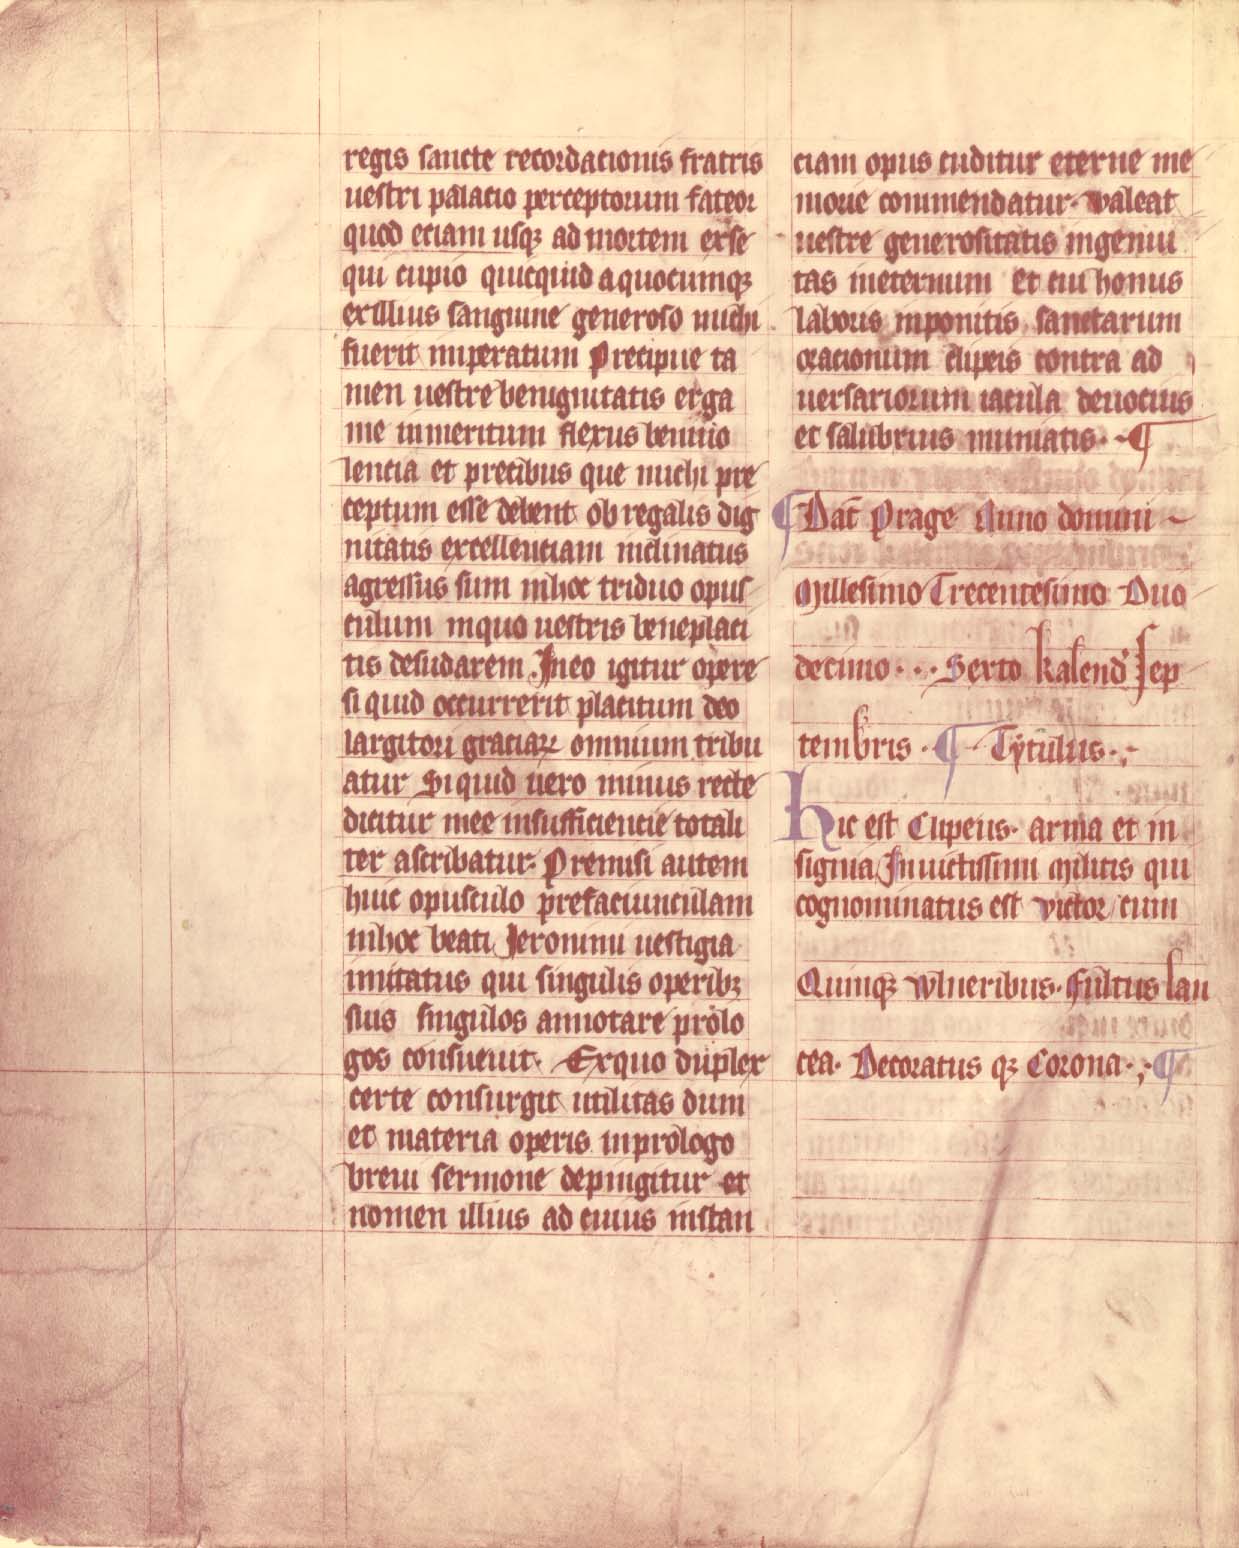 regis sancte recordationis fratris
uestri palacio perceptorum fateor
quod eciam usqꝫ ad mortem exse
qui cupio quicquid a quocumqꝫ
ex illius sanguine generoso michi
fuerit imperatum Precipue ta
men uestre benignitatis erga
me inmeritum flexus beniuo
lencia et precibus que michi pre
ceptum esse debent ob regalis dig
nitatis excellenciam inclinatus
agressus sum in hoc triduo opus
culum in quo uestris beneplaci
tis desudarem. In eo igitur opere
si quid occurrerit placitum deo
largitori graciaꝝ omnium tribu
atur Si quid uero minus recte
dicitur mee insufficiencie totali
ter ascribatur. Premisi autem
huic opusculo prefaciunculam
in hoc beati Jeronimi uestigia
imitatus qui singulis operibꝫ
suis singulos annotare prolo
gos consueuit. Ex quo duplex
certe consurgit utilitas dum
et materia operis in prologo
breui sermone depingitur et
nomen illius ad cuius instan
ciam opus cuditur eterne me
morie commendatur. Valeat
uestre generositatis ingenui
tas in eternum Et cui honus
laboris inponitis sanctarum
oracionum clipeis contra ad
uersariorum iacula deuocius
et salubrius muniatis. ¶
¶ Dat̄ Prage Anno domini
Millesimo Trecentesimo Duo
decimo . . . Sexto kalend' Sep
tembris . ¶ Tytulus . ;
Hic est Clipeus. arma et in
signia Inuictissimi Militis qui
cognominatus est Victor cum
Quinqꝫ wlneribus. fultus lan
cea. Decoratus qꝫ Corona . ; ¶